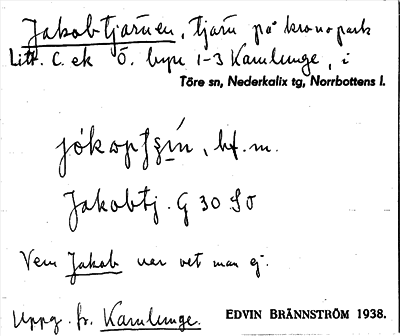 Jakobtjärnen, tjärn på kronopark
Litt. C. ek Ö. byn 1-3 Kamlunge, i
Töre sn, Nederkalix tg, Norrbottens l.
bf. m.
Jakobtj. G 30 SO
Vem Jakob var vet man ej.
Uppg. fr. Kamlunge.
EDVIN BRÄNNSTRÖM 1938.